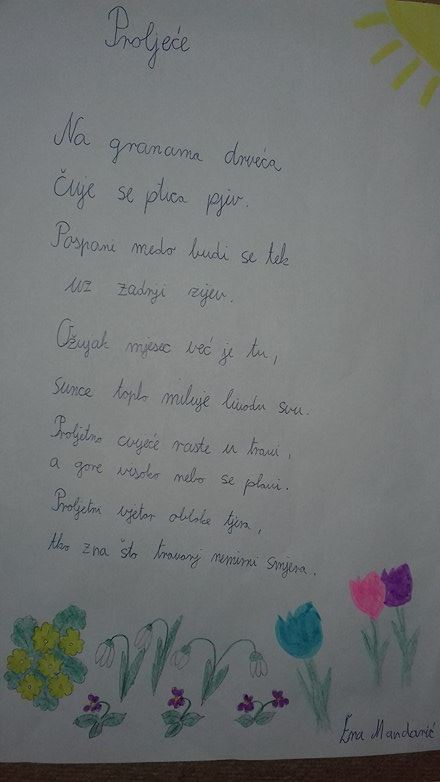 Proljeće
Na granama drveća
Čuje se ptica pjev.
Pospani medo budi se tek
uz zadnji zijev.
Ožujak mjesec već je tu,
sunce toplo miluje livadu svu.
Proljetno cvijeće raste u travi,
a gore visoko nebo se plavi.
Proljetni vjetar oblake tjera,
tko zna što travanj nemirni smjera.
Ena Mandarić